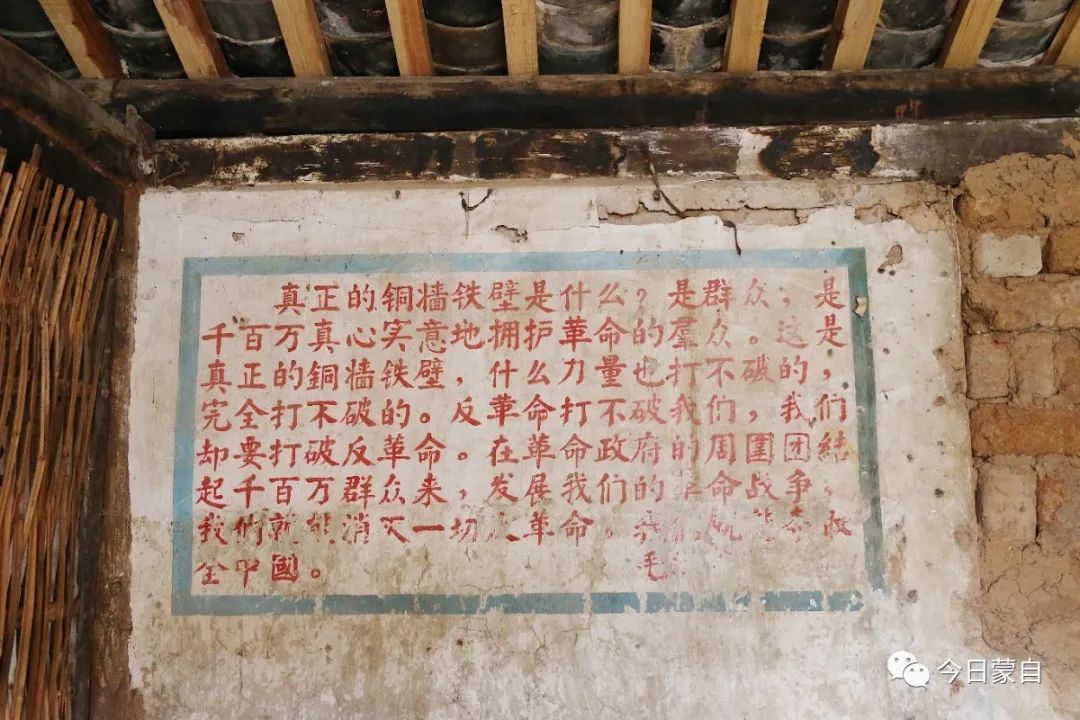 真正的铜墙铁壁是什么？是群众，是
千百万真心实意地拥护革命的羣众。这是
真正的銅墙铁壁，什么力量也打不破的，
完全打不破的。反革命打不破我们，我们
却要打破反革命。在革命政府的周圍团結
起千百万群众来，发展我们的革命战争，
我们就能消灭一切反革命，我们就能夺取
全中國。 毛
今日蒙自